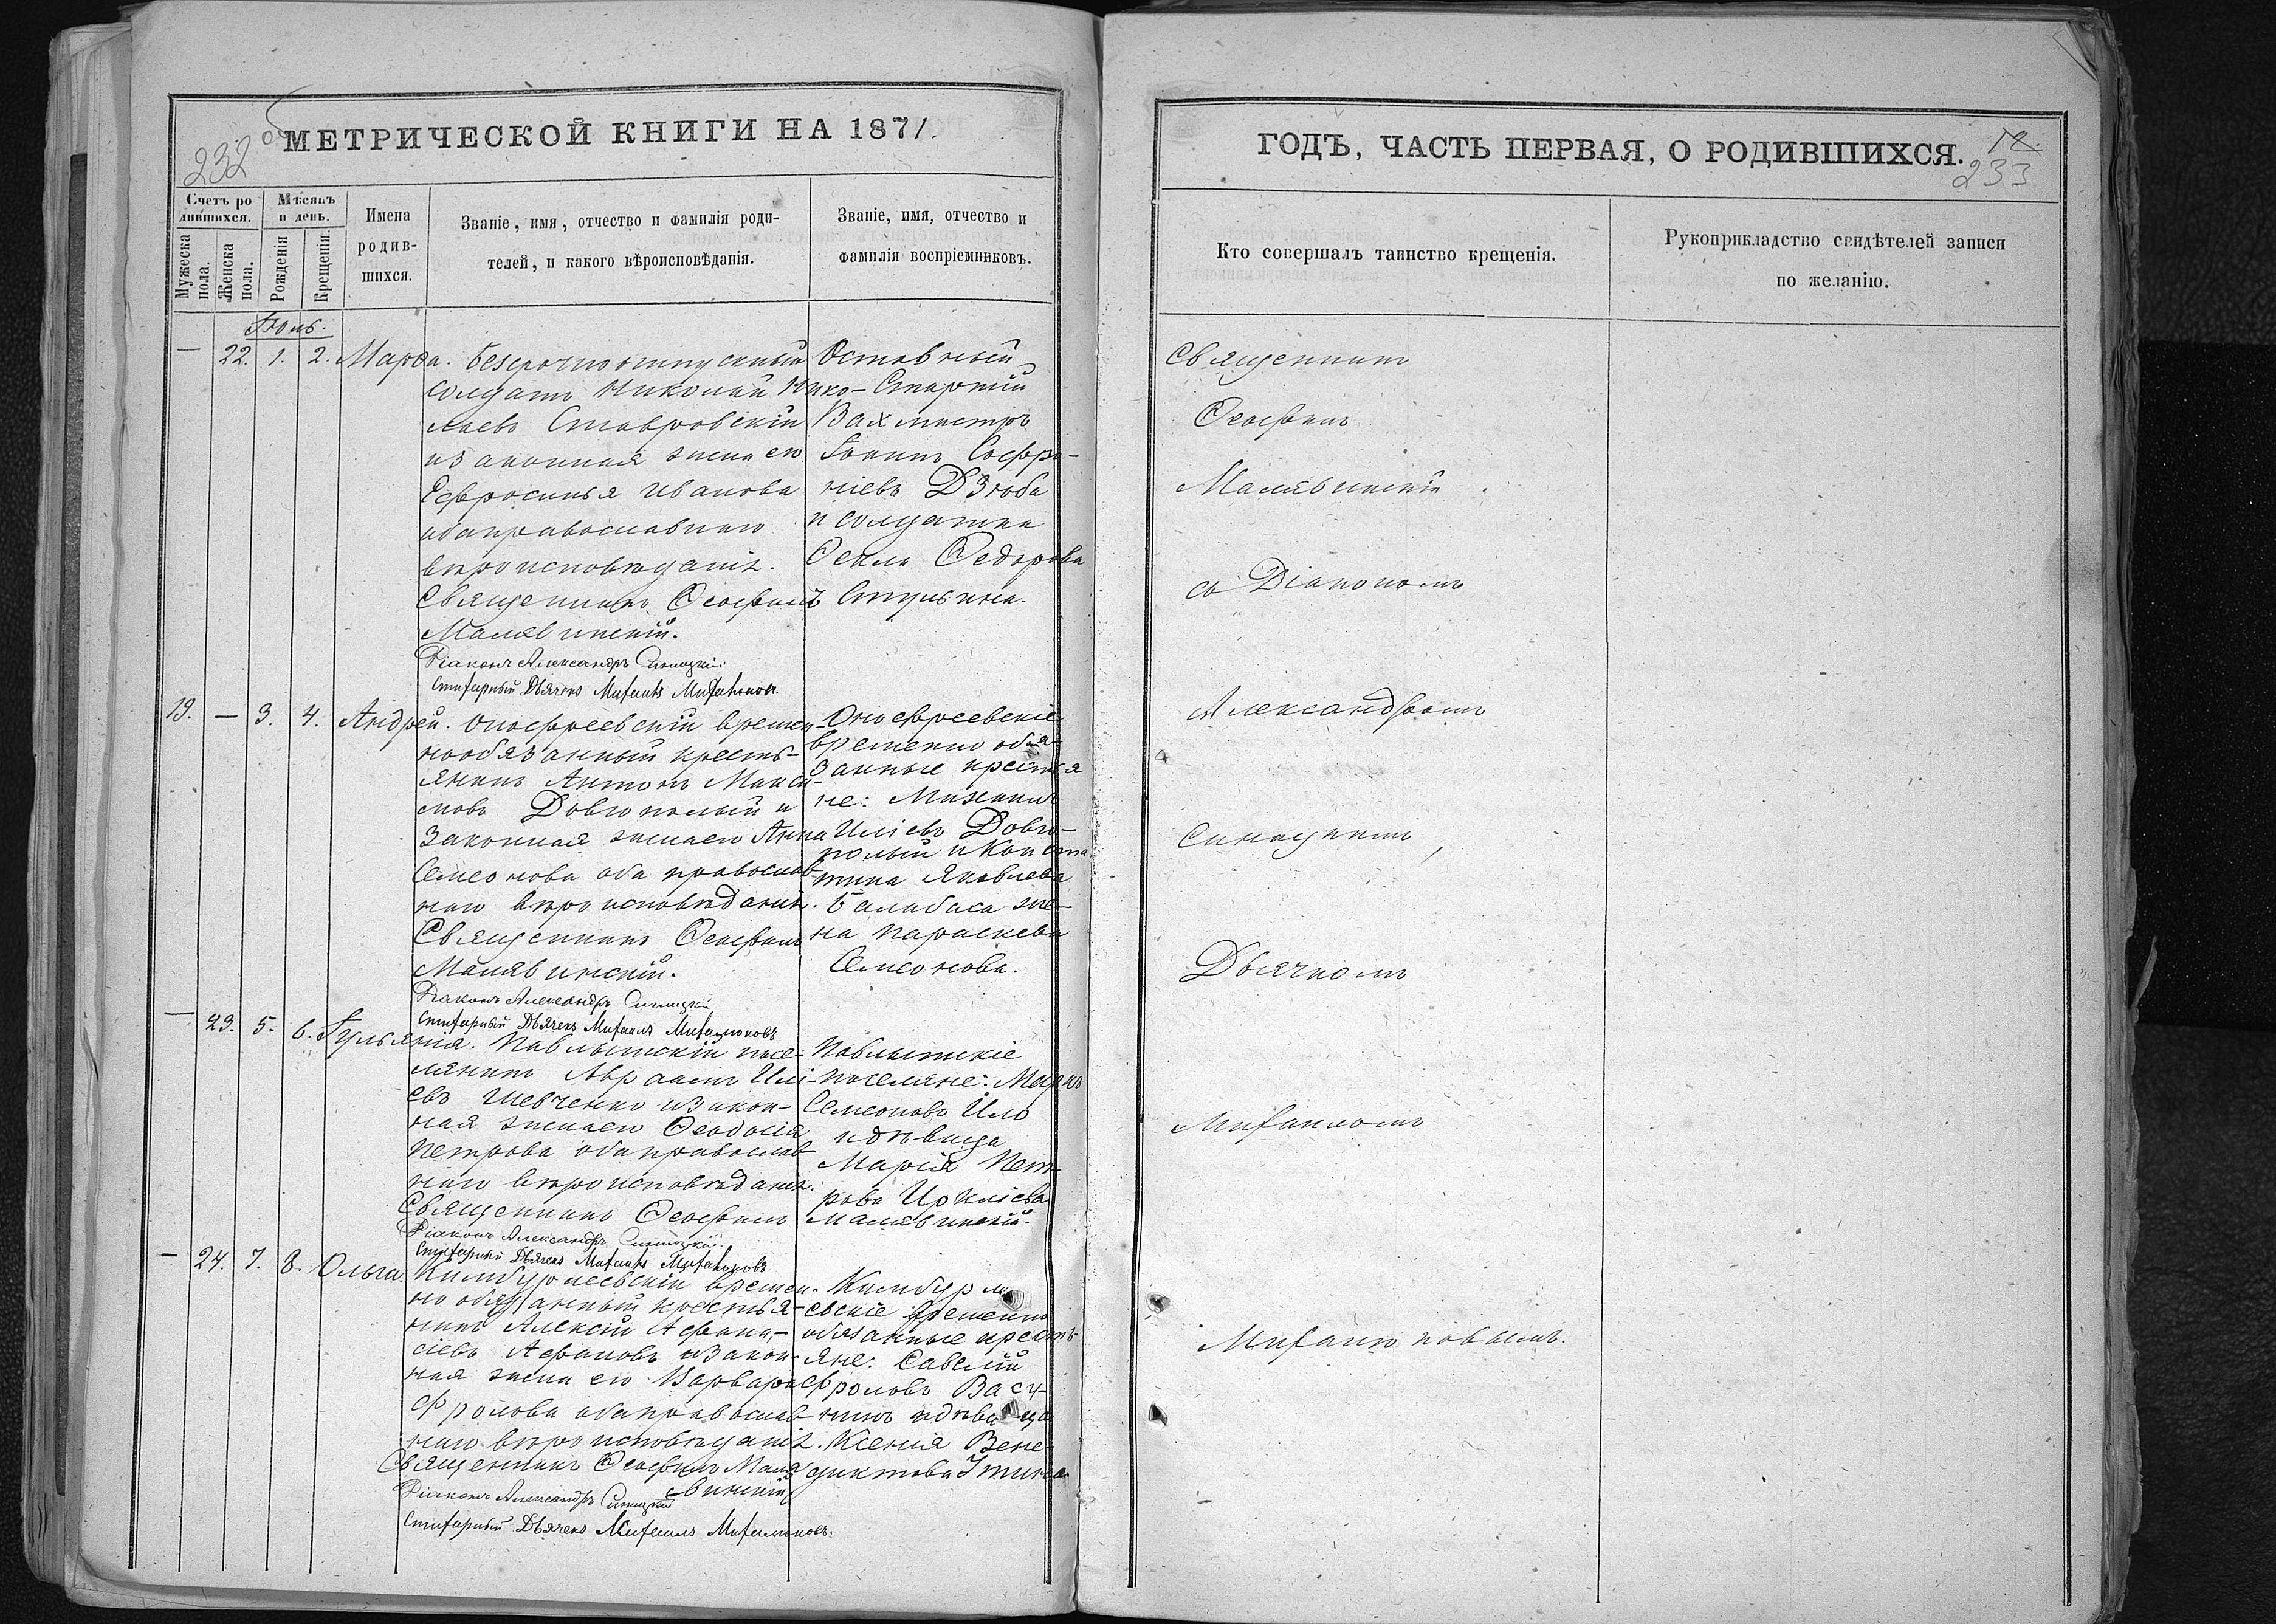 МЕТРИЧЕСКОЙ КНИГИ НА 1871.
232
Счетъ родившихся.
Мѣсяцъ и день.
Мужеска пола.
Женска пола.
Рожденія
Крещенія.
Имена родившихся.
Званіе, имя, отчество и фамилія родителей, и какого вѣроисповѣданія.
Званіе, имя, отчество и фамилія воспріемниковъ.
Іюнь.
— 22. 1. 2. Марѳа.
Безсрочноотпускный
солдатъ Николай Нико-
лаевъ Ставровскій
и законная жена его
Ефросинья Иванова
оба православнаго
вѣроисповѣданія.
Священникъ Ѳеофилъ
Малявинскій.
Діаконъ Александръ Синицкій
Стихарный Дьячекъ Михаилъ
Отставный
Старшій
Вахмистръ
Іоаннъ Софро-
ніевъ Дзюба
и солдатка
Ѳекла Ѳедорова
19. — 3. 4. Андрей.
Онофреевскій времен-
нообязанный кресть-
янинъ Антонъ Макси-
мовъ Довгополый и
законная жена его Анна
Семеонова оба православ-
наго вѣроисповѣданія.
Священникъ Ѳеофилъ
Малявинскій.
Діаконъ Александръ Синицкій
Стихарный Дьячекъ Михаилъ
Онофреевскіе
временно обя-
занные крестья
не: Михаилъ
Иліевъ Довго-
полый и Конста
тина Яковлева
Балабаса же-
на Параскева
Семеонова.
— 23. 5. 6. Іульянія.
Павлышскій посе-
лянинъ Авраамъ Илі-
евъ Шевченко и закон-
ная жена его Ѳеодосія
Петрова оба православ-
наго вѣроисповѣданія.
Священникъ Ѳеофилъ
Малявинскій.
Діаконъ Александръ Синицкій
Стихарный Дьячекъ Михаилъ
Павлышскіе
поселяне: Марко
Семеоновъ
и дѣвица
Марія Пет-
рова
— 24. 7. 8. Ольга.
временно
но обязанный крестья-
нинъ Алексій Афана-
сіевъ Афановъ и закон-
ная жена его Варвара
Фролова оба православ-
наго вѣроисповѣданія.
Священникъ Ѳеофилъ Маля
винскій
Діаконъ Александръ Синицкій
Стихарный Дьячекъ Михаилъ
евскіе временно
обязанные кресть
яне: Савелій
Фроловъ Васу-
нинъ и дѣвица
Ксенія Вене-
диктова
ГОДЪ, ЧАСТЬ ПЕРВАЯ, О РОДИВШИХСЯ.
12.
233
Кто совершалъ таинство крещенія.
Рукоприкладство свидѣтелей записи по желанію.
Священникъ
Ѳеофилъ
Малявинскій
съ Діакономъ
Александромъ
Синицкимъ,
Дьячкомъ
Михаиломъ